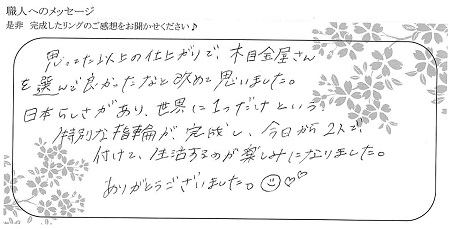 職人へのメッセージ
是非 完成したリングのご感想をお聞かせください♪
思ってた以上の仕上がりで、杢目金屋さん
を選んで良かったなと改めて思いました。
日本らしさがあり、世界に1つだけという
特別な指輪が完成し、今日から2人で
付けて、生活するのが楽しみになりました。
ありがとうございました。☺♡♡